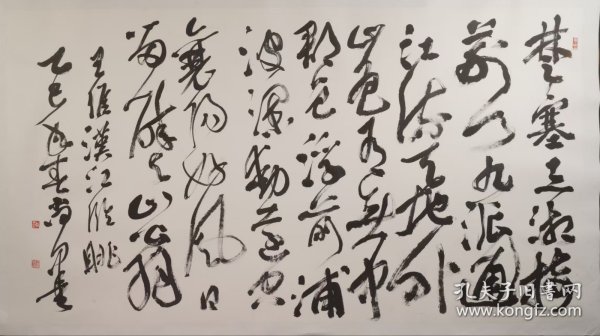 楚塞三湘接
荆门九派通
江流天地外
山色有无中
郡邑浮前浦
波澜动远空
襄阳好风日
留醉与山翁
王维汉江临眺
乙巳年春尚�书
孔夫子旧书网
www.kongfz.com